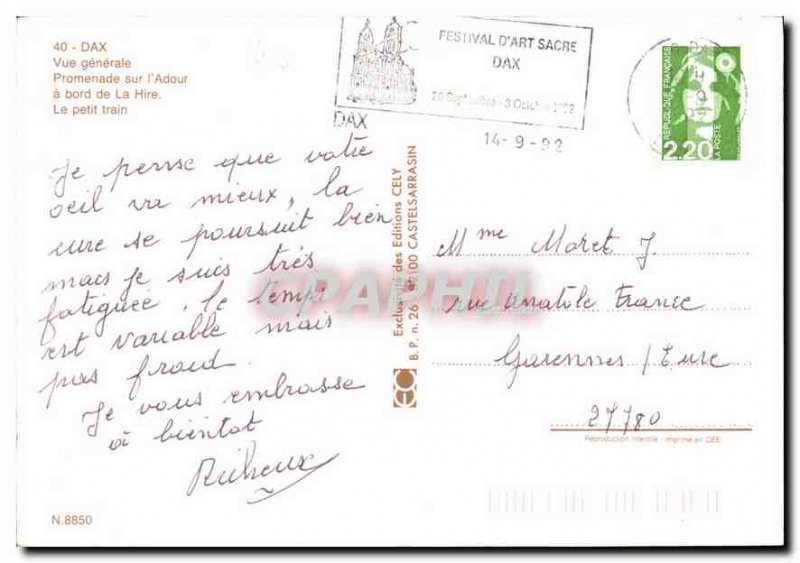 40 - DAX
Vue générale
Promenade sur l'Adour
à bord de La Hire.
Le petit train
DAX
FESTIVAL D'ART SACRE
DAX
14-9-92
REPUBLIQUE FRANÇAISE
2,20
LA POSTE
Je pense que votre
oeil va mieux, la
cure se poursuit bien
mais je suis très
fatiguée, le temps
est variable mais
pas froid.
Je vous embrasse
à bientot
Exclusivité des Editions CELY
B.P. n. 26 82100 CASTELSARRASIN
CPAPHIL
Mme Moret J.
rue Anatole France
Garennes / Eure
27780
Reproduction interdite - Imprimé en CEE
N.8850